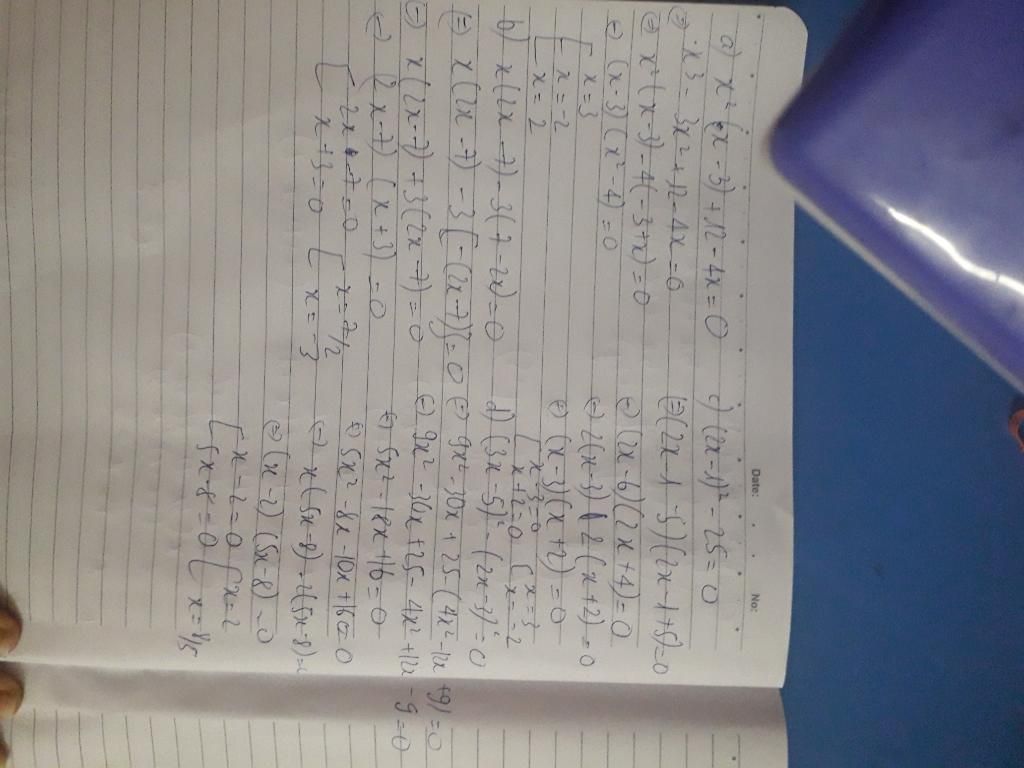 Date:
No:
a) x² (x - 3) + 12 - 4x = 0
(=) x3 - 3x2 + 12 - 4x = 0
(=) x² (x - 3) - 4(-3 + x) = 0
(=) (x - 3) (x² - 4) = 0
[ x = 3
[ x = -2
[ x = 2
b) x(2x - 7) - 3(7 - 2x) = 0
(=) x(2x - 7) - 3[-(2x - 7)] = 0
(=) x(2x - 7) + 3(2x - 7) = 0
(=) (2x - 7) (x + 3) = 0
[ 2x - 7 = 0 [ x = 7/2
[ x + 3 = 0 [ x = -3
c) (2x - 1)² - 25 = 0
(=) (2x - 1 - 5) (2x - 1 + 5) = 0
(=) (2x - 6) (2x + 4) = 0
(=) 2(x - 3) 2 (x + 2) = 0
(=) (x - 3) (x + 2) = 0
[ x - 3 = 0 [ x = 3
[ x + 2 = 0 [ x = -2
d) (3x - 5)² - (2x - 3)² = 0
(=) 9x² - 30x + 25 - (4x² - 12x + 9) = 0
(=) 9x² - 30x + 25 - 4x² + 12x - 9 = 0
(=) 5x² - 18x + 16 = 0
(=) 5x² - 8x - 10x + 16 = 0
(=) x (5x - 8) - 2(5x - 8) =
(=) (x - 2) (5x 8) = 0
[ x - 2 = 0 [ x = 2
[ 5x - 8 = 0 [ x = 8/5